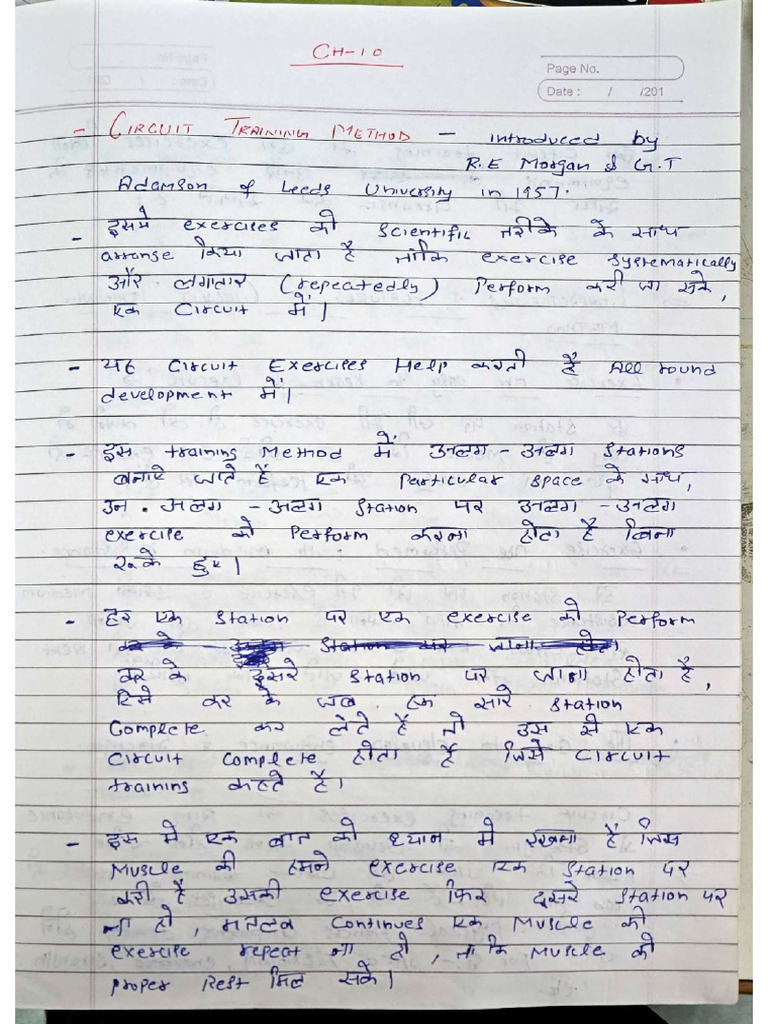 CH-10
Page No.
Date : / /201
- CIRCUIT TRAINING METHOD - introduced by
R.E Morgan & G.T
Adamson of Leeds University in 1957.
- इसमे exercises को Scientific तरीके के साथ
arrange किया जाता है ताकि exercise systematically
और लगातार (repeatedly) Perform करी जा सके,
एक Circuit में।
- यह Circuit Exercises Help करती है All round
development में।
- इस training Method में अलग-अलग Stations
बनाऐ जाते हैं एक Particular space के साथ,
उन अलग-अलग Station पर अलग-अलग
exercise को Perform करना होता है बिना
रुके हुए।
- हर एक Station पर एक exercise को Perform
कर के दुसरे station पर जाना होता है,
ऐसे कर के जब हम सारे station
Complete कर लेते है तो उस से एक
Circuit Complete होता है जिसे Circuit
training कहते है।
- इस मे एक बात को ध्यान मे रखना है जिस
Muscle की हमने exercise एक station पर
करी है उसकी exercise फिर दुसरे station पर
ना हो, मतलब Continues एक Muscle की
exercise repeat ना हो, ताकि Muscle को
proper Rest मिल सके।